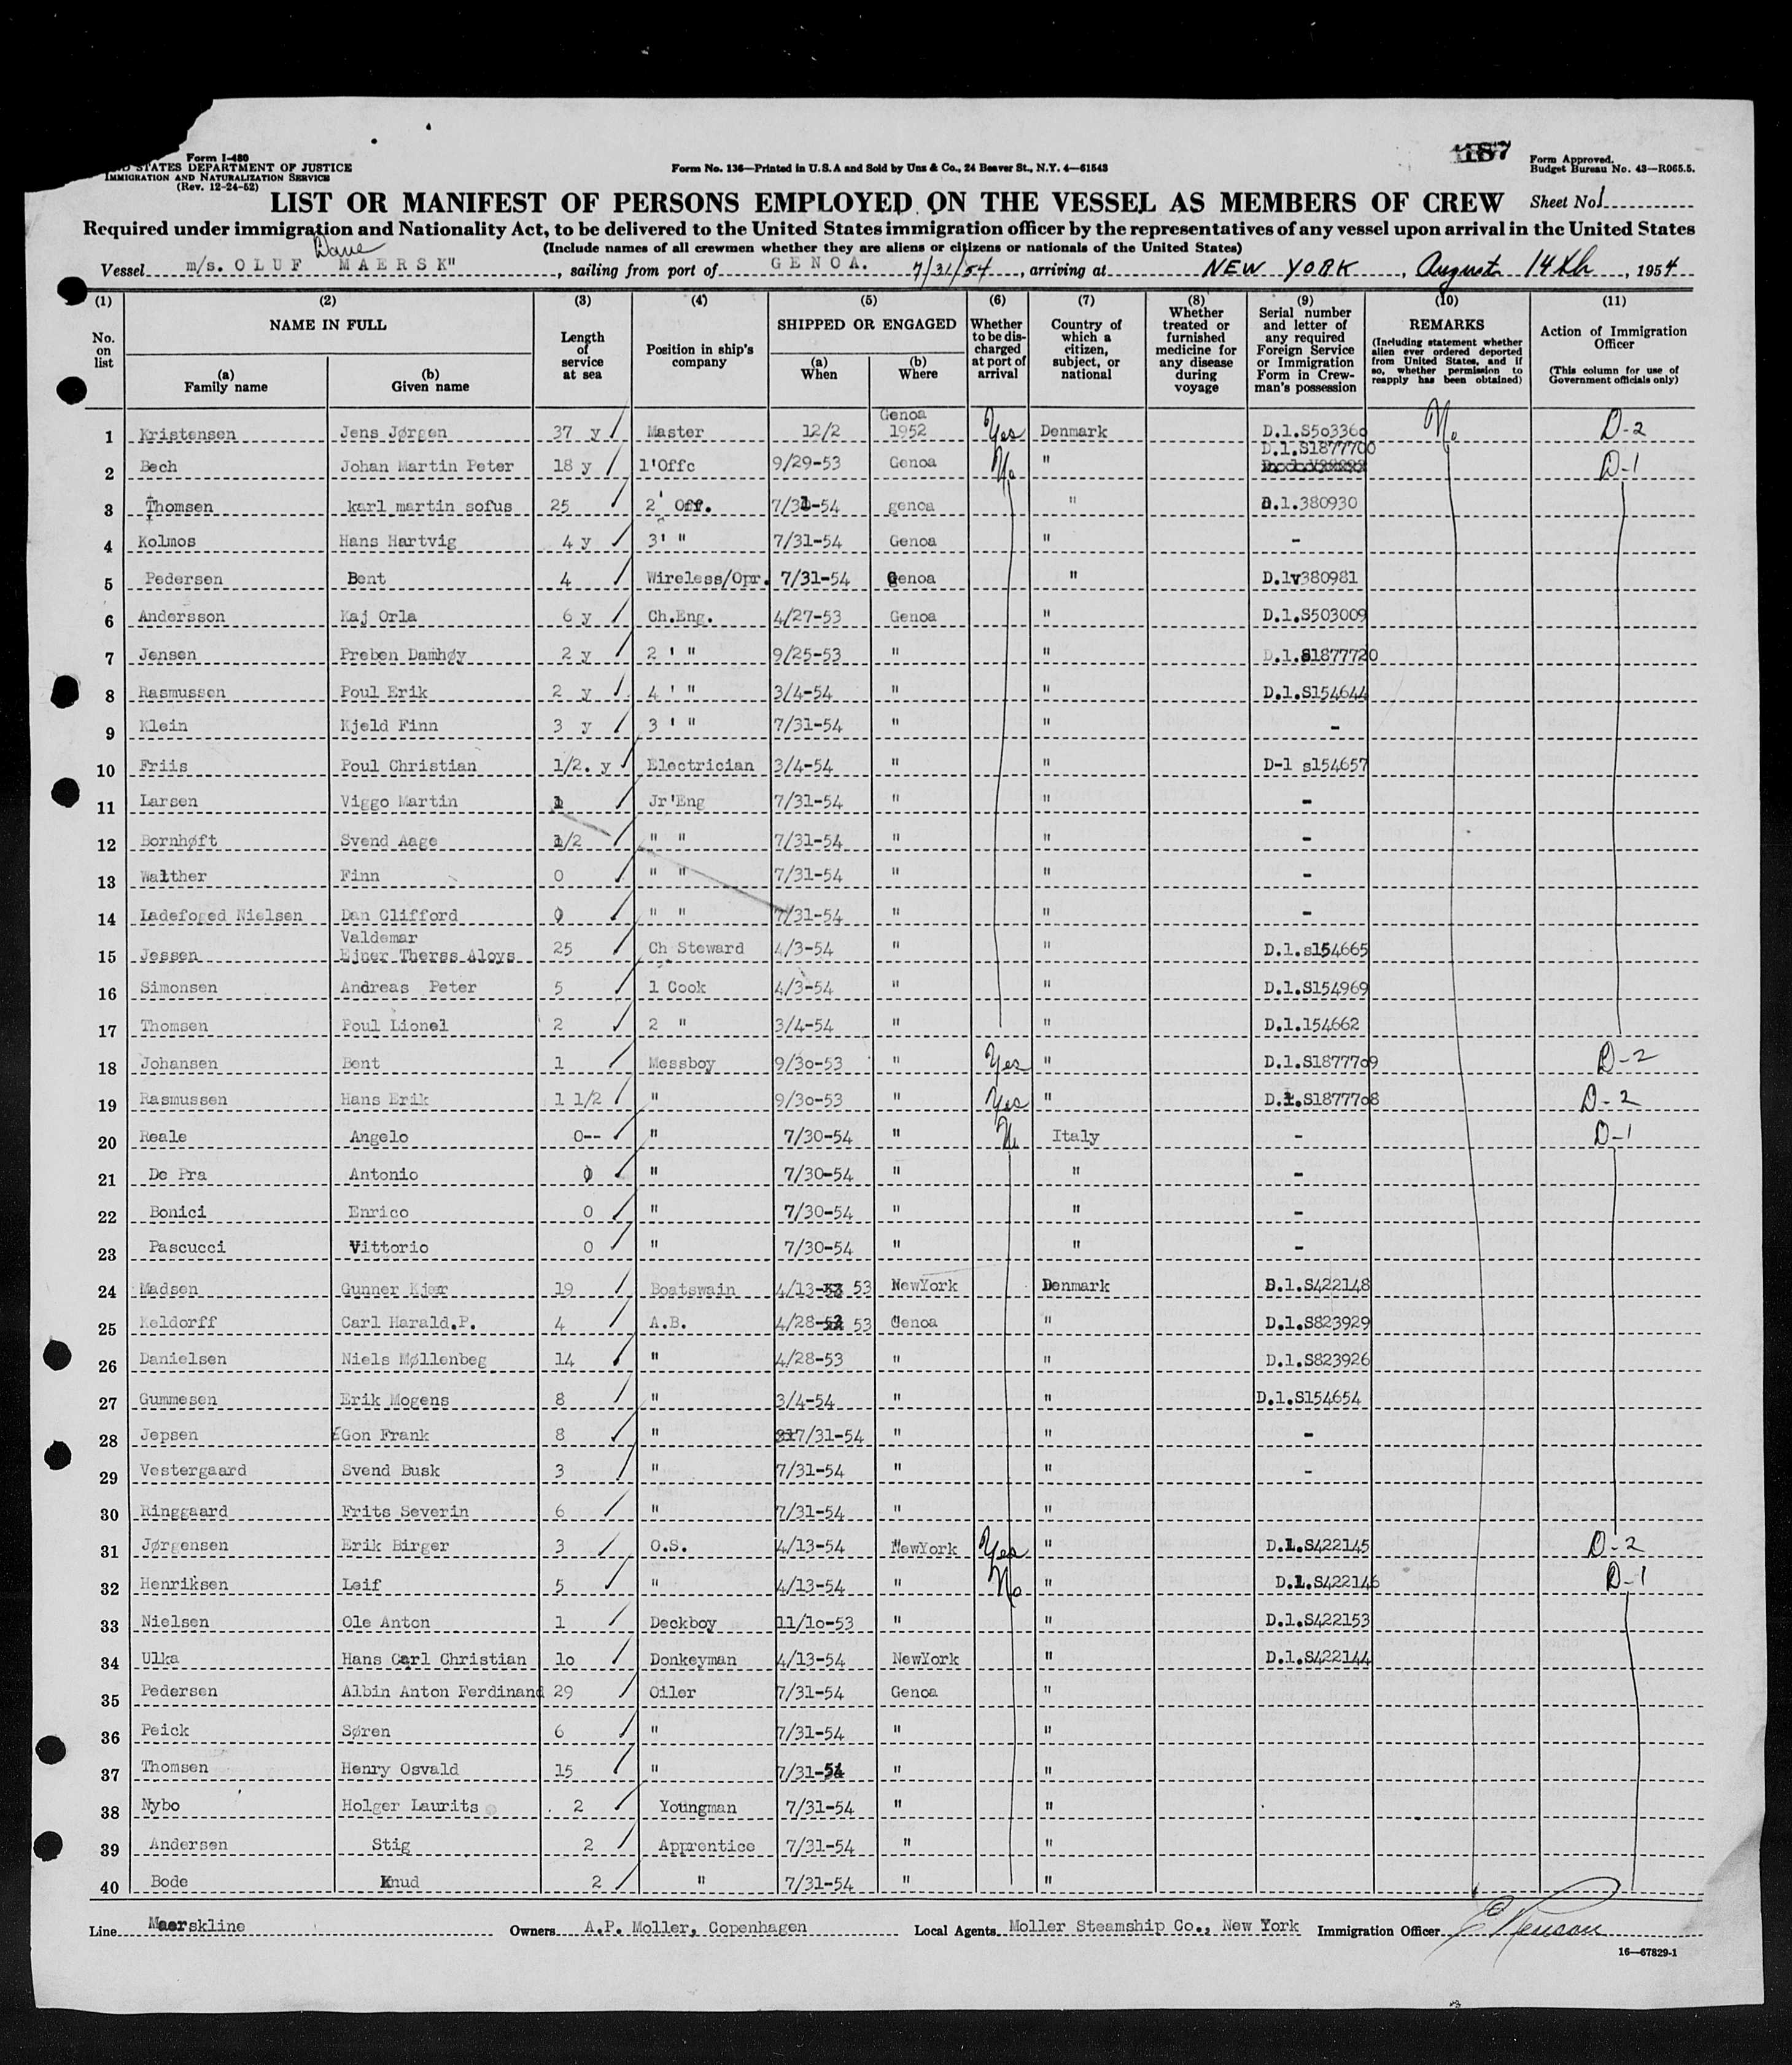 Form I-480
STATES DEPARTMENT OF JUSTICE
IMMIGRATION AND NATURALIZATION SERVICE
(Rev. 12-24-52)
Form No. 136—Printed in U.S.A and Sold by Unz & Co., 24 Beaver St., N.Y. 4—61543
187
Form Approved.
Budget Bureau No. 43—R065.5.
LIST OR MANIFEST OF PERSONS EMPLOYED ON THE VESSEL AS MEMBERS OF CREW
Sheet No. 1
Required under immigration and Nationality Act, to be delivered to the United States immigration officer by the representatives of any vessel upon arrival in the United States
(Include names of all crewmen whether they are aliens or citizens or nationals of the United States)
Dane
Vessel m/s. OLUF MAERSK", sailing from port of GENOA. 7/31/54, arriving at NEW YORK, August 14th, 1954
(1) (2) (3) (4) (5) (6) (7) (8) (9) (10) (11)
No. on list
NAME IN FULL
(a) Family name
(b) Given name
Length of service at sea
Position in ship's company
SHIPPED OR ENGAGED
(a) When
(b) Where
Whether to be discharged at port of arrival
Country of which a citizen, subject, or national
Whether treated or furnished medicine for any disease during voyage
Serial number and letter of any required Foreign Service or Immigration Form in Crewman's possession
REMARKS
(Including statement whether alien ever ordered deported from United States, and if so, whether permission to reapply has been obtained)
Action of Immigration Officer
(This column for use of Government officials only)
1 Kristensen Jens Jørgen 37 y Master 12/2 1952 Genoa Yes Denmark D.1.S503360 No D-2
2 Bech Johan Martin Peter 18 y 1'Offc 9/29-53 Genoa No " D.1.S1877700 D-1
3 Thomsen karl martin sofus 25 2' Off. 7/31-54 genoa " D.1.380930
4 Kolmos Hans Hartvig 4 y 3' " 7/31-54 Genoa " -
5 Pedersen Bent 4 Wireless/Opr. 7/31-54 Genoa " D.1v380981
6 Andersson Kaj Orla 6 y Ch.Eng. 4/27-53 Genoa " D.1.S503009
7 Jensen Preben Damhøy 2 y 2 ' " 9/25-53 " " D.1.S1877720
8 Rasmussen Poul Erik 2 y 4 ' " 3/4-54 " " D.1.S154644
9 Klein Kjeld Finn 3 y 3 ' " 7/31-54 " " -
10 Friis Poul Christian 1/2. y Electrician 3/4-54 " " D-1 s154657
11 Larsen Viggo Martin 1 Jr'Eng 7/31-54 " " -
12 Bornhøft Svend Aage 1/2 " " 7/31-54 " " -
13 Walther Finn 0 " " 7/31-54 " " -
14 Ladefoged Nielsen Dan Clifford 0 " " 7/31-54 " " -
15 Jessen Valdemar Ejner Therss Aloys 25 Ch Steward 4/3-54 " " D.1.s154665
16 Simonsen Andreas Peter 5 1 Cook 4/3-54 " " D.1.S154969
17 Thomsen Poul Lionel 2 2 " 3/4-54 " " D.1.154662
18 Johansen Bent 1 Messboy 9/3o-53 " Yes " D.1.S18777o9 D-2
19 Rasmussen Hans Erik 1 1/2 " 9/3o-53 " Yes " D.1.S18777o8 D-2
20 Reale Angelo 0-- " 7/30-54 " No Italy - D-1
21 De Pra Antonio 0 " 7/30-54 " " -
22 Bonici Enrico 0 " 7/30-54 " " -
23 Pascucci Vittorio 0 " 7/30-54 " " -
24 Madsen Gunner Kjær 19 Boatswain 4/13- 53 NewYork Denmark D.1.S422148
25 Keldorff Carl Harald.P. 4 A.B. 4/28- 53 Genoa " D.1.S823929
26 Danielsen Niels Møllenbeg 14 " 4/28-53 " " D.1.S823926
27 Gummesen Erik Mogens 8 " 3/4-54 " " D.1.S154654
28 Jepsen Gon Frank 8 " 7/31-54 " " -
29 Vestergaard Svend Busk 3 " 7/31-54 " " -
30 Ringgaard Frits Severin 6 " 7/31-54 " "
31 Jørgensen Erik Birger 3 O.S. 4/13-54 NewYork Yes " D.1.S422145 D-2
32 Henriksen Leif 5 " 4/13-54 " No " D.1.S422146 D-1
33 Nielsen Ole Anton 1 Deckboy 11/1o-53 " " D.1.S422153
34 Ulka Hans Carl Christian 1o Donkeyman 4/13-54 NewYork " D.1.S422144
35 Pedersen Albin Anton Ferdinand 29 Oiler 7/31-54 Genoa "
36 Peick Søren 6 " 7/31-54 " "
37 Thomsen Henry Osvald 15 " 7/31-54 " "
38 Nybo Holger Laurits 2 Youngman 7/31-54 " "
39 Andersen Stig 2 Apprentice 7/31-54 " "
40 Bode Knud 2 " 7/31-54 " "
Line Maerskline Owners A.P. Moller, Copenhagen Local Agents Moller Steamship Co., New York Immigration Officer
16—67829-1